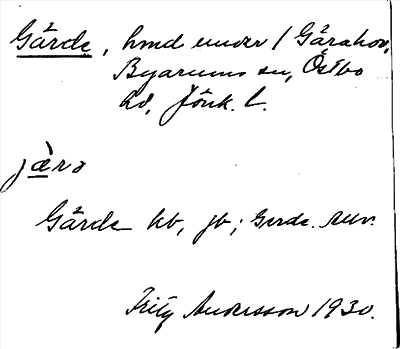 Gärde, hmd under 1 Gårahov,
Byarums sn, Östbo
hd, Jönk. l.
jæ̀rə
Gärde kb, jb; Gerde.
Fritz Andersson 1930.